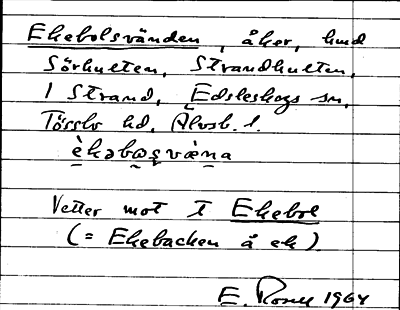 Ekebolsvänden, åker, hmd
Sörhulten, Strandhulten,
1 Strand, Edsleskogs sn,
Tössbo hd, Älvsb. l.
Vetter mot t Ekebol
(= Ekebacken å ek)
E. 1964